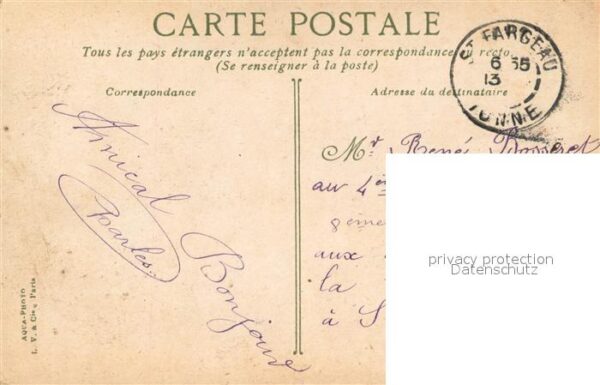 CARTE POSTALE
Tous les pays étrangers n'acceptent pas la correspondance au recto.
(Se renseigner à la poste)
Correspondance
Adresse du destinataire
ST FARGEAU
6 55
13
YONNE
Amical
Bonjour
Charles
Mr René
au 4è
aux
la
à S
privacy protection
Datenschutz
AQUA-PHOTO
L. V. & Cie, Paris